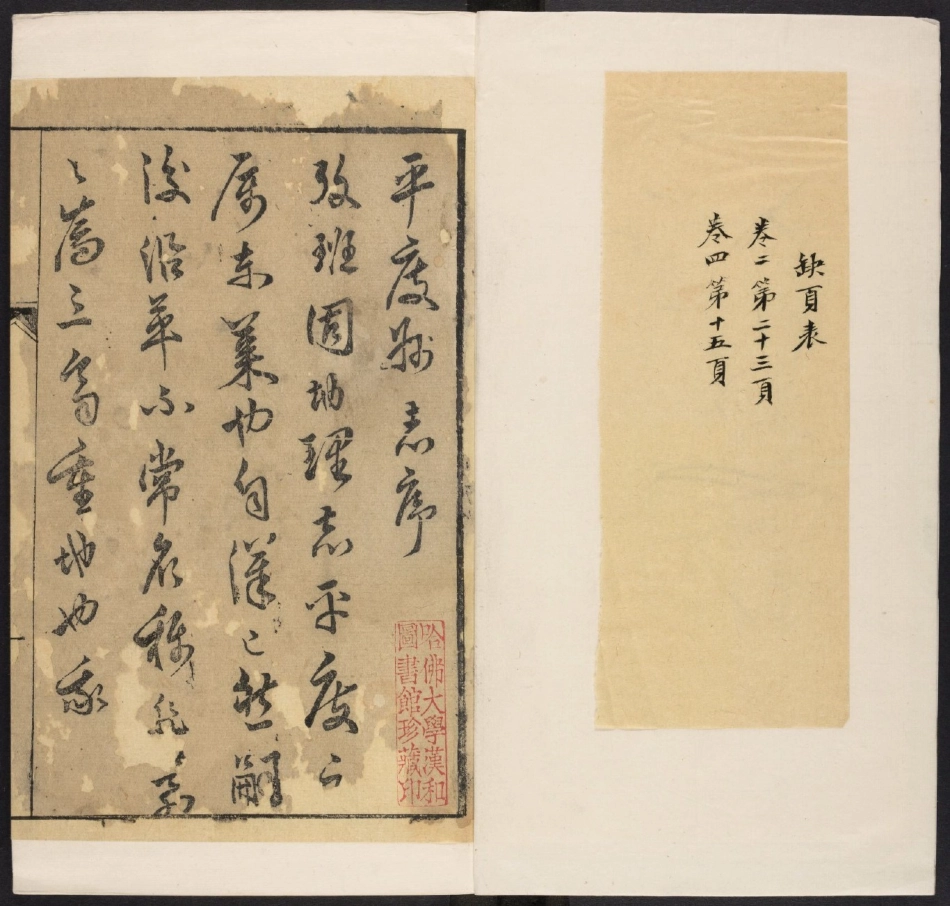 缺頁表
卷二 第二十三頁
卷四 第十五頁
平度志序
攷班固地理志平度之
属東萊也自漢已然嗣
後沿革不常名称
三齊重地也我
哈佛大學漢和
圖書館珍藏印